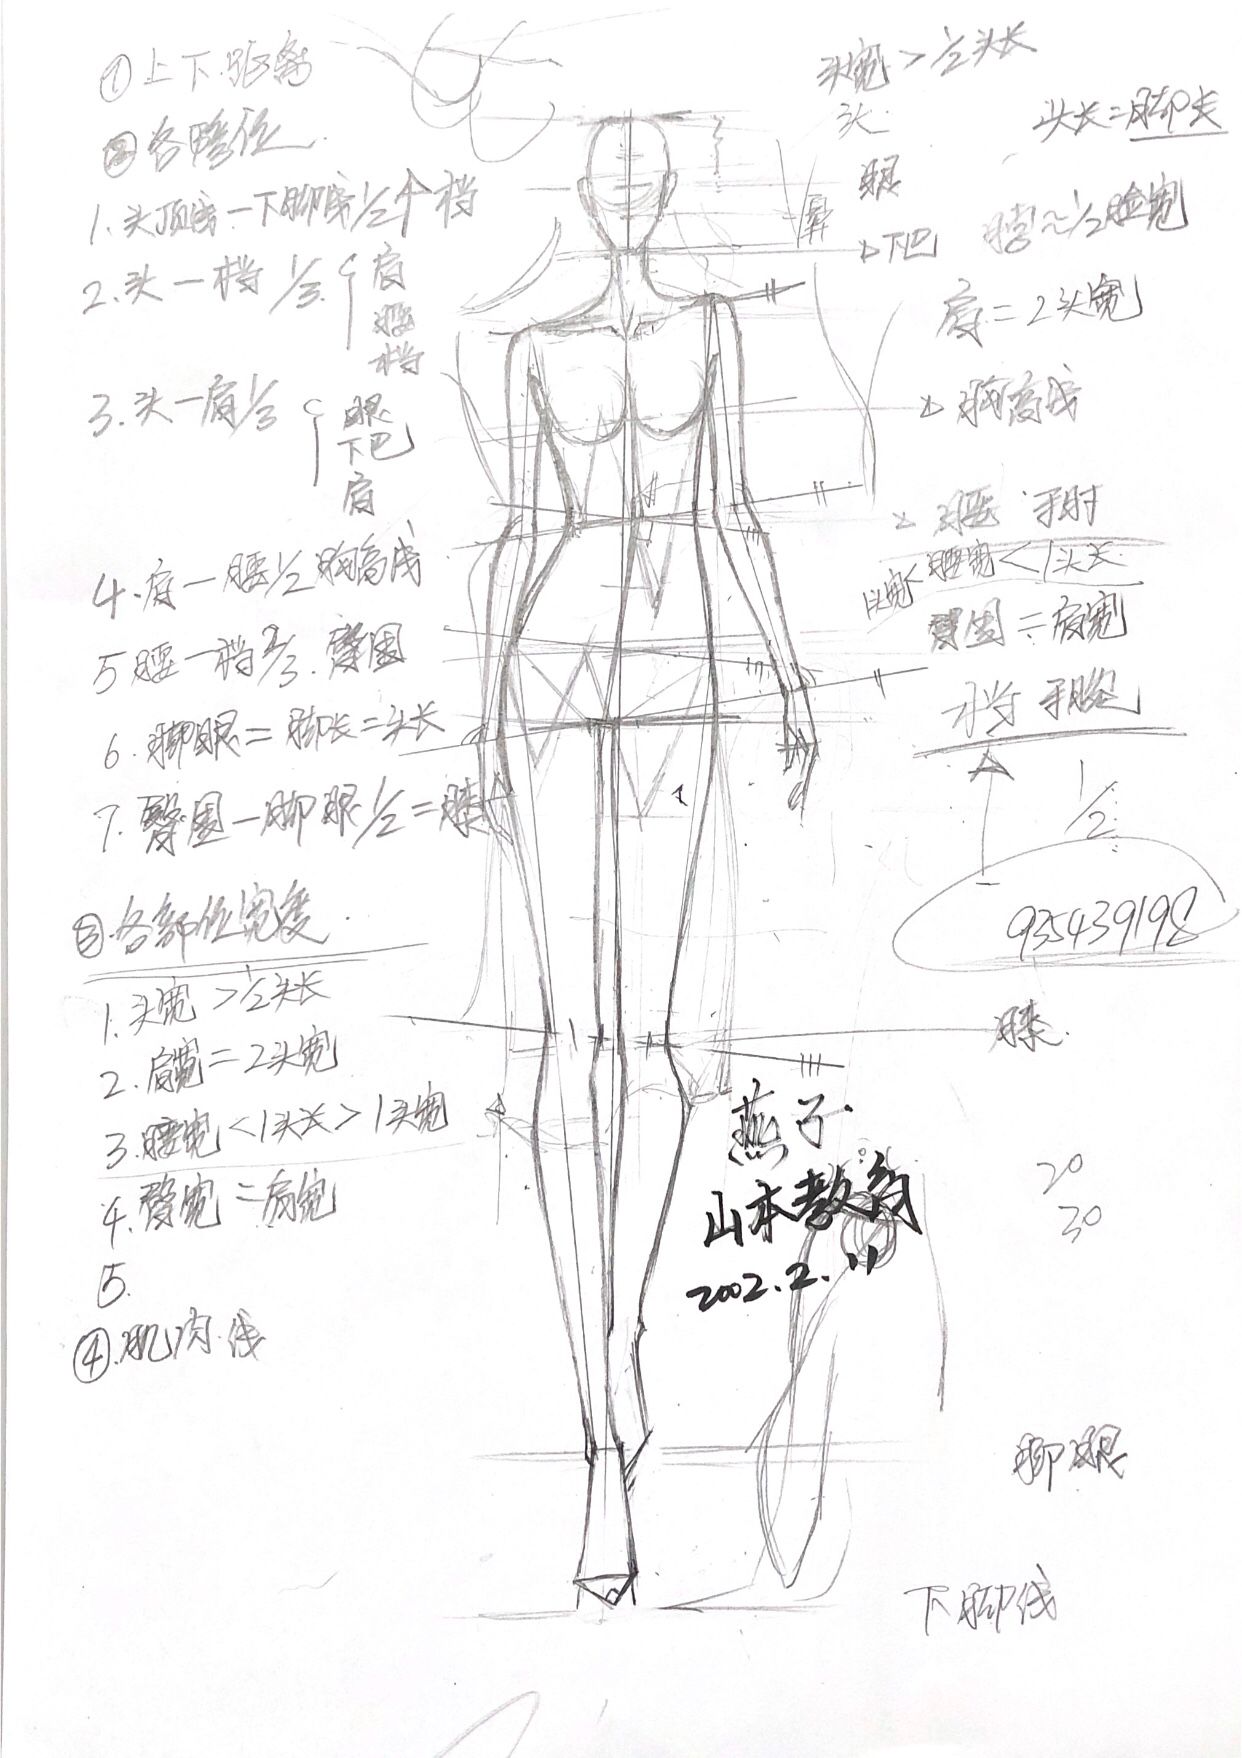 ①上下距离
②各踭位
1.头顶底一下脚底1/2个档
2.头一档1/3{肩
腰
档
3.头一肩1/3{眼
下巴
肩
4.肩一腰1/2胸高线
5腰一档2/3.臀围
6.脚眼=脚长=头长
7.臀围一脚眼1/2=膝
③.各部位宽度
1.头宽>1/2头长
2.肩宽=2头宽
3.腰宽<1头长>1头宽
4.臀宽=肩宽
5.
④.肌肉线
头宽>1/2头长
头
头长=脚长
眼
鼻
下巴
1/2脸宽
肩=2头宽
胸高线
腰 手肘
头宽<腰宽<1头长
臀围=肩宽
档 手腕
1/2
935439198
膝
燕子
山本教育
2002.2.11
20
30
脚眼
下脚线